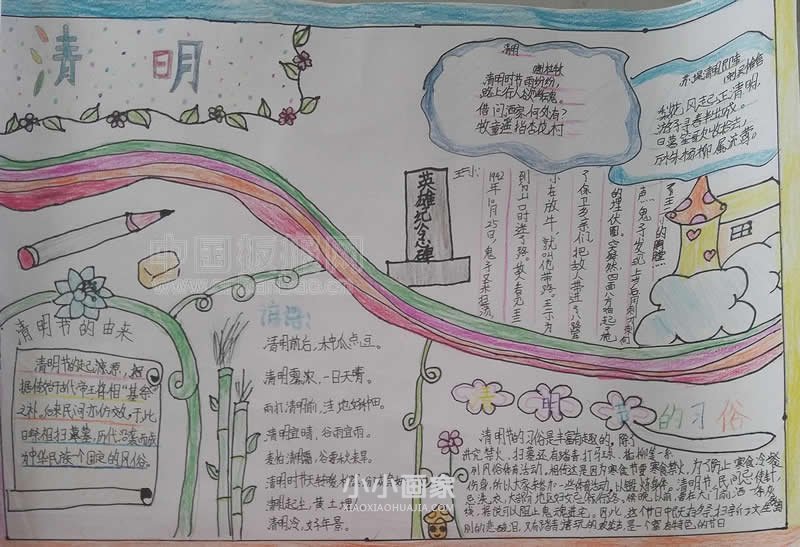 清明
清明
清明时节雨纷纷,
路上行人欲断魂。
借问酒家何处有?
牧童遥指杏花村
苏堤清明即事
梨花风起正清明,
游子寻春半出城。
日暮笙歌收拾去,
万株杨柳属流莺。
英雄纪念碑
王二小
1942年10月25日,鬼子又来扫荡,
到
山口时迷了路。敌人看见王二
小在放牛,就叫他带路。王二小为
了保卫乡亲们,把敌人带进了八路军
的埋伏圈。突然,四面八方响起了枪
声,鬼子发现上当后用刺刀
了王二小的胸膛
中国板报网
清明节的由来
清明节的起源,
据传始于古代帝王将相"墓祭"
之礼,后来民间亦仿效,于此
日祭祖扫墓,历代沿袭而成
为中华民族一个固定的风俗。
谚语:
清明前后,种瓜点豆。
清明雾浓,一日天晴。
雨打清明前,洼地好种田。
清明宜晴,谷雨宜雨。
麦怕清明霜,谷要秋来旱。
清明时节
清明起尘,黄土
清明冷,好年景。
清明节的习俗
清明节的习俗是丰富有趣的,除了
讲究禁火、扫墓,还有踏青、打马球、插柳等一系
列风俗体育活动。相传这是因为寒食节要寒食禁火,为了防止寒食冷餐
伤身,所以大家来参加一些体育活动,以锻炼身体。清明节,民间忌使针,
忌洗衣,大部分地区妇女忌行路。傍晚以前,要在大门前洒一条灰
线,据说可以阻止鬼魂进宅。因此,这个节日中既有祭扫新坟生
别死离的悲酸泪,又有踏青游玩的欢笑声,是一个富有特色的节日
小小画家
XIAOXIAOHUAJIA.COM